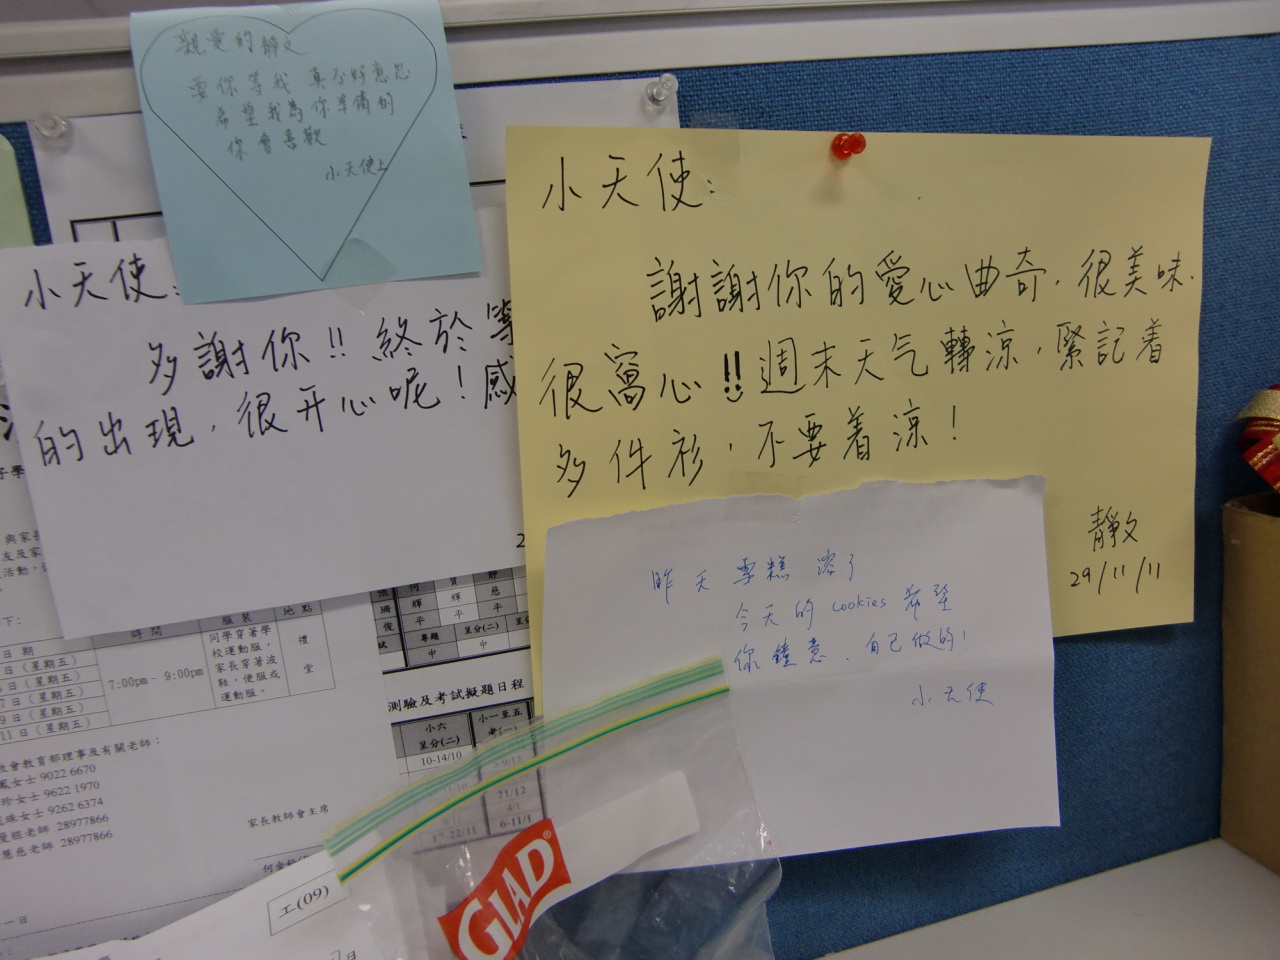 親愛的靜文
要你等我 真不好意思
希望我為你準備的
你會喜歡
小天使上
小天使:
多謝你!! 終於等
的出現，很开心呢！感
小天使:
謝謝你的愛心曲奇，很美味.
很窩心!! 週末天气轉涼，緊記着
多件衫，不要着涼！
靜文
29/11/11
昨天雪糕溶了
今天的 cookies 希望
你鍾意，自己做的！
小天使
時間
服裝
地點
日期
(星期五)
(星期五)
7日(星期五)
9日(星期五)
11日(星期五)
7:00pm - 9:00pm
同學穿著學
校運動服，
家長穿著波
鞋，便服或
運動服。
禮
堂
教會教育部理事及有關老師：
鳳女士 9022 6670
珍女士 9622 1970
珠女士 9262 6374
老師 28977866
慧慈老師 28977866
家長教師會主席
測驗及考試擬題日程
小六
呈分(二)
小一至五
考(一)
10-14/10
21/12
4/1
17-22/11
6-11/1
專題
呈分(二)
中
中
工(09)
GLAD